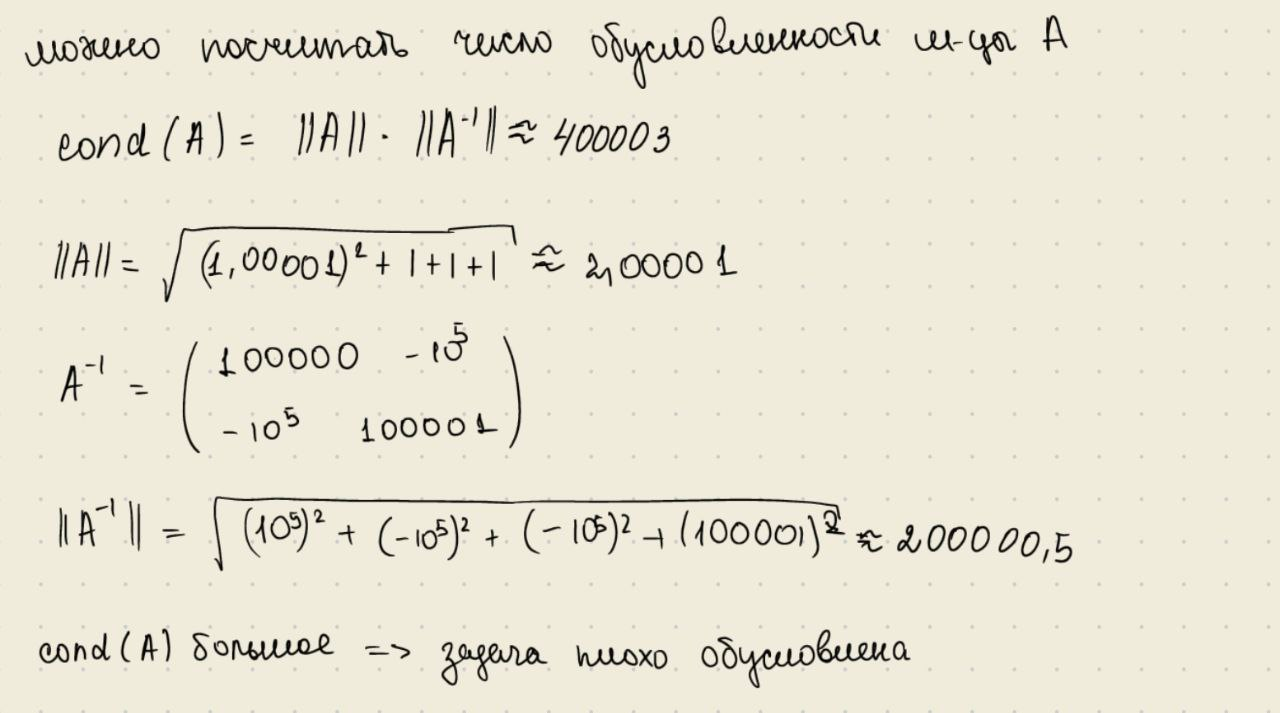 можно посчитать число обусловленности м-цы A
cond(A) = ||A|| · ||A⁻¹|| ≈ 400003
||A|| = √((1,00001)² + 1+1+1) ≈ 2,00001
A⁻¹ = ( 100000 -10⁵
-10⁵ 100001 )
||A⁻¹|| = √((10⁵)² + (-10⁵)² + (-10⁵)² + (100001)²) ≈ 200000,5
cond(A) большое => задача плохо обусловлена